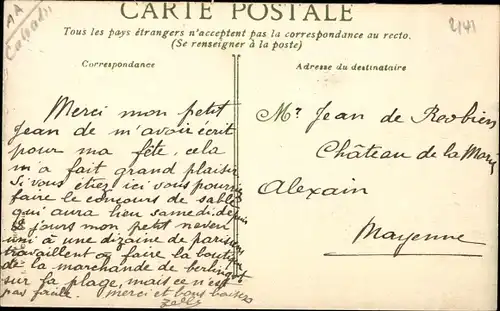 CARTE POSTALE
Tous les pays étrangers n'acceptent pas la correspondance au recto.
(Se renseigner à la poste)
Correspondance
Adresse du destinataire
Merci mon petit
Jean de m'avoir écrit
pour ma fête, cela
m'a fait grand plaisir
Si vous étiez ici vous pourriez
faire le concours de sable
qui aura lieu samedi depuis
jours mon petit neveu
uni à une dizaine de parisiens
travaillent à faire la boutique
de la marchande de berlingots
sur la plage, mais ce n'est
pas facile. merci et bons baisers
Mr Jean de Robien
Château de la
Alexain
Mayenne